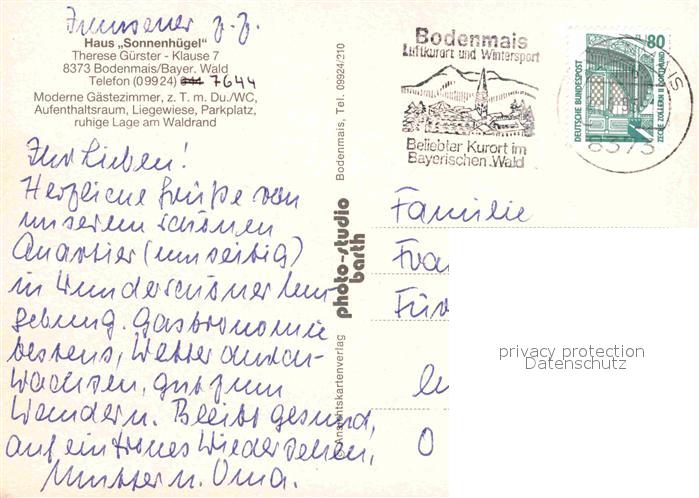 z. Z.
Haus „Sonnenhügel"
Therese Gürster - Klause 7
8373 Bodenmais/Bayer. Wald
Telefon (09924) 7644
Moderne Gästezimmer, z. T. m. Du./WC,
Aufenthaltsraum, Liegewiese, Parkplatz,
ruhige Lage am Waldrand
Ihr Lieben!
Herzliche Grüße von
unserem schönen
Quartier (umseitig)
in wunderschöner Um
gebung. Gastronomie
bestens, Wetter durch-
wachsen, gut zum
Wandern. Bleibt gesund,
auf ein frohes Wiedersehen,
Mutter u. Oma.
© Ansichtskartenverlag
photo-studio
barth
Bodenmais, Tel. 09924/210
Bodenmais
Luftkurort und Wintersport
Beliebter Kurort im
Bayerischen Wald
DEUTSCHE BUNDESPOST
80
ZECHE ZOLLERN II DORTMUND
IS
8373
Familie
Fra
Für
O
privacy protection
Datenschutz